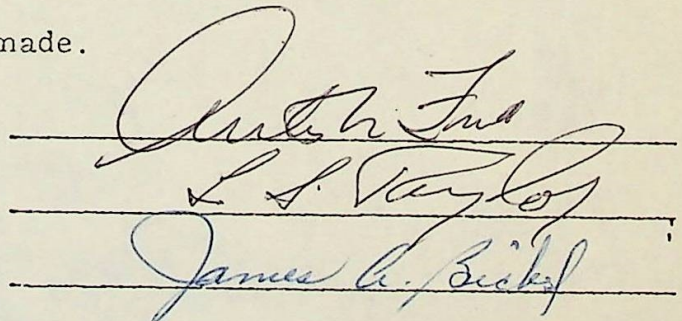 made.
L. S. Taylor
James A. Bickel